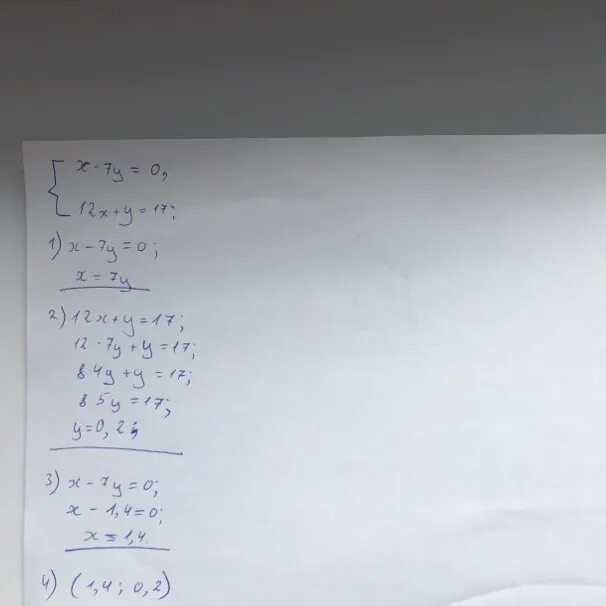 x - 7y = 0,
12x + y = 17;
1) x - 7y = 0;
x = 7y
2) 12x + y = 17;
12 · 7y + y = 17;
84y + y = 17;
85y = 17;
y = 0,2;
3) x - 7y = 0;
x - 1,4 = 0;
x = 1,4.
4) (1,4; 0,2)